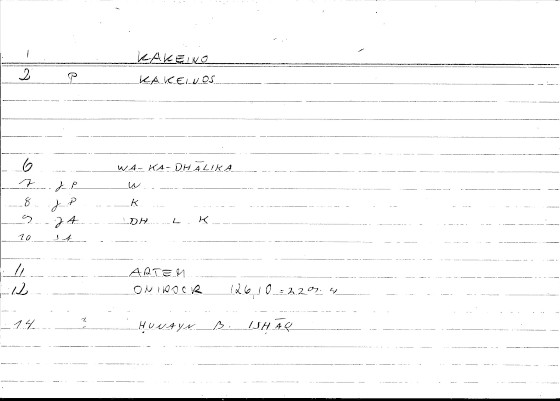 1 KAKEINO
2 P KAKEINOS
6 WA-KA-DHĀLIKA
7 JP W
8 JP K
9 JA DH L K
10 JA
11 ARTEM
12 ONIROCR 126,10 =
14 ? ḤUNAYN B. ISHĀQ